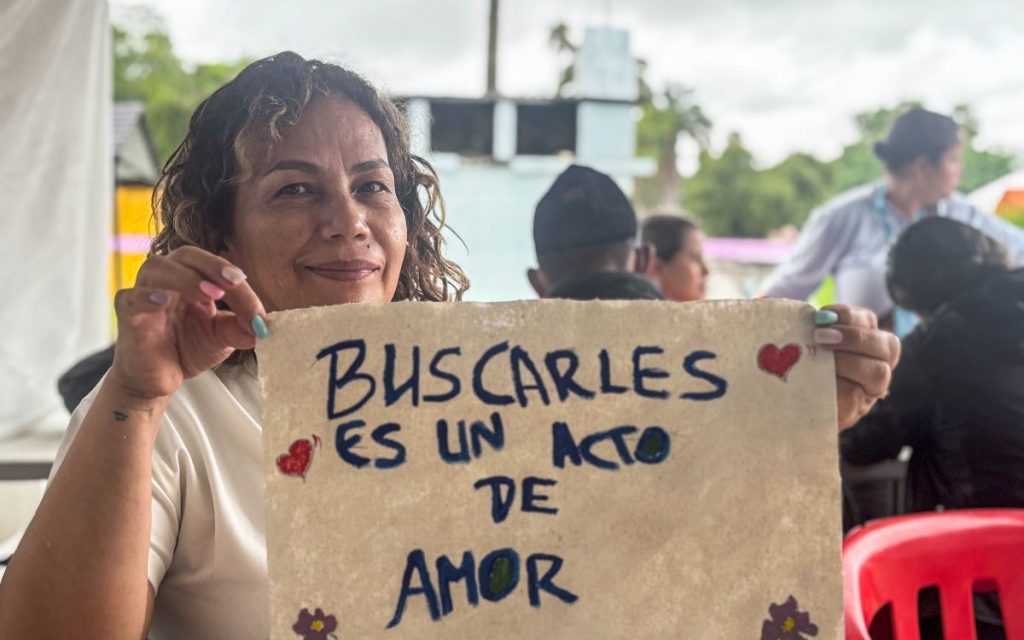 BUSCARLES
ES UN ACTO
DE
AMOR